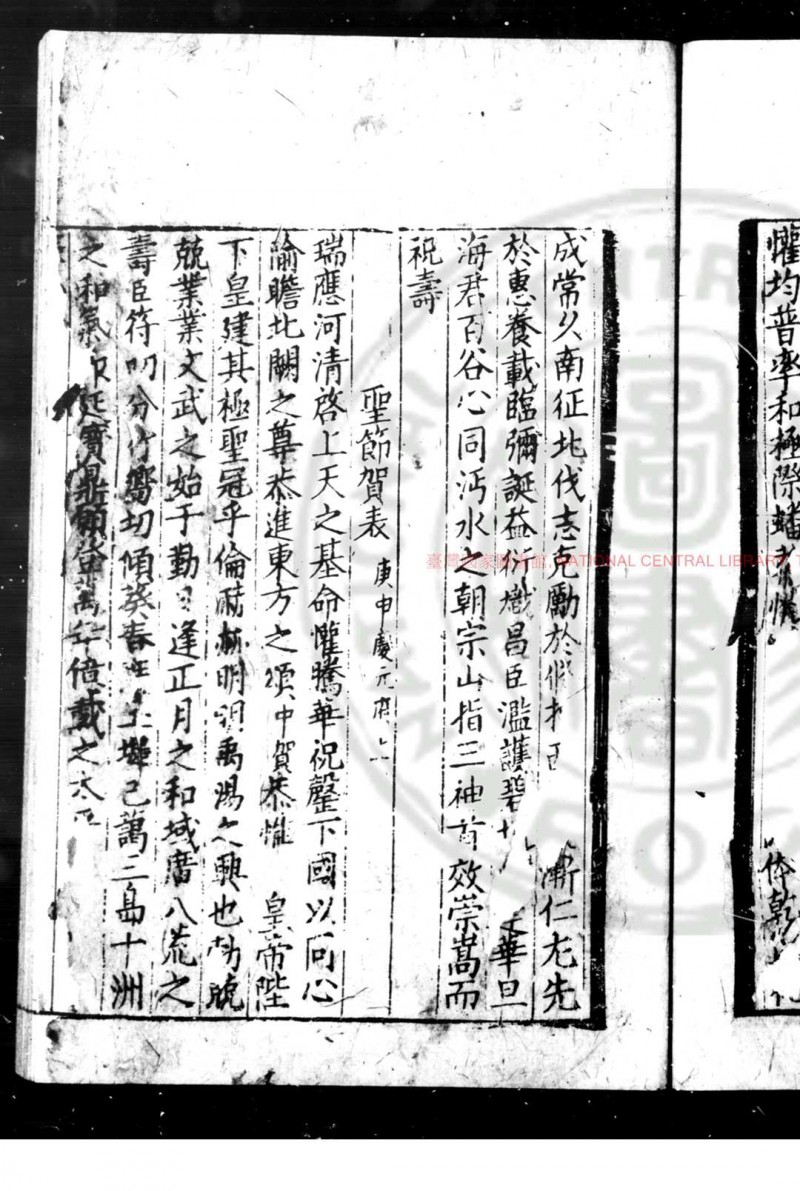 懽均普率和極際蟠
体乾
成常久南征北伐志克勵於
漸仁尤先
於惠養載臨彌誕益衍熾昌臣濫護碧
華旦
海君百谷心同沔水之朝宗山指三神首效崇嵩而
祝壽
聖節賀表 庚申慶元府上
瑞應河清啓上天之基命懽騰華祝罄下國以同心
喻瞻北闕之尊恭進東方之頌中賀恭惟 皇帝陛
下皇建其極聖冠乎倫 明 禹湯之興也勃兢
兢業業文武之始于勤 逢正月之和域廣八荒之
壽臣符 分 切傾葵春 已萬三島十洲
之和氣 延寶鼎願益萬年倍載之太平
臺灣國家圖書館, NATIONAL CENTRAL LIBRARY, T